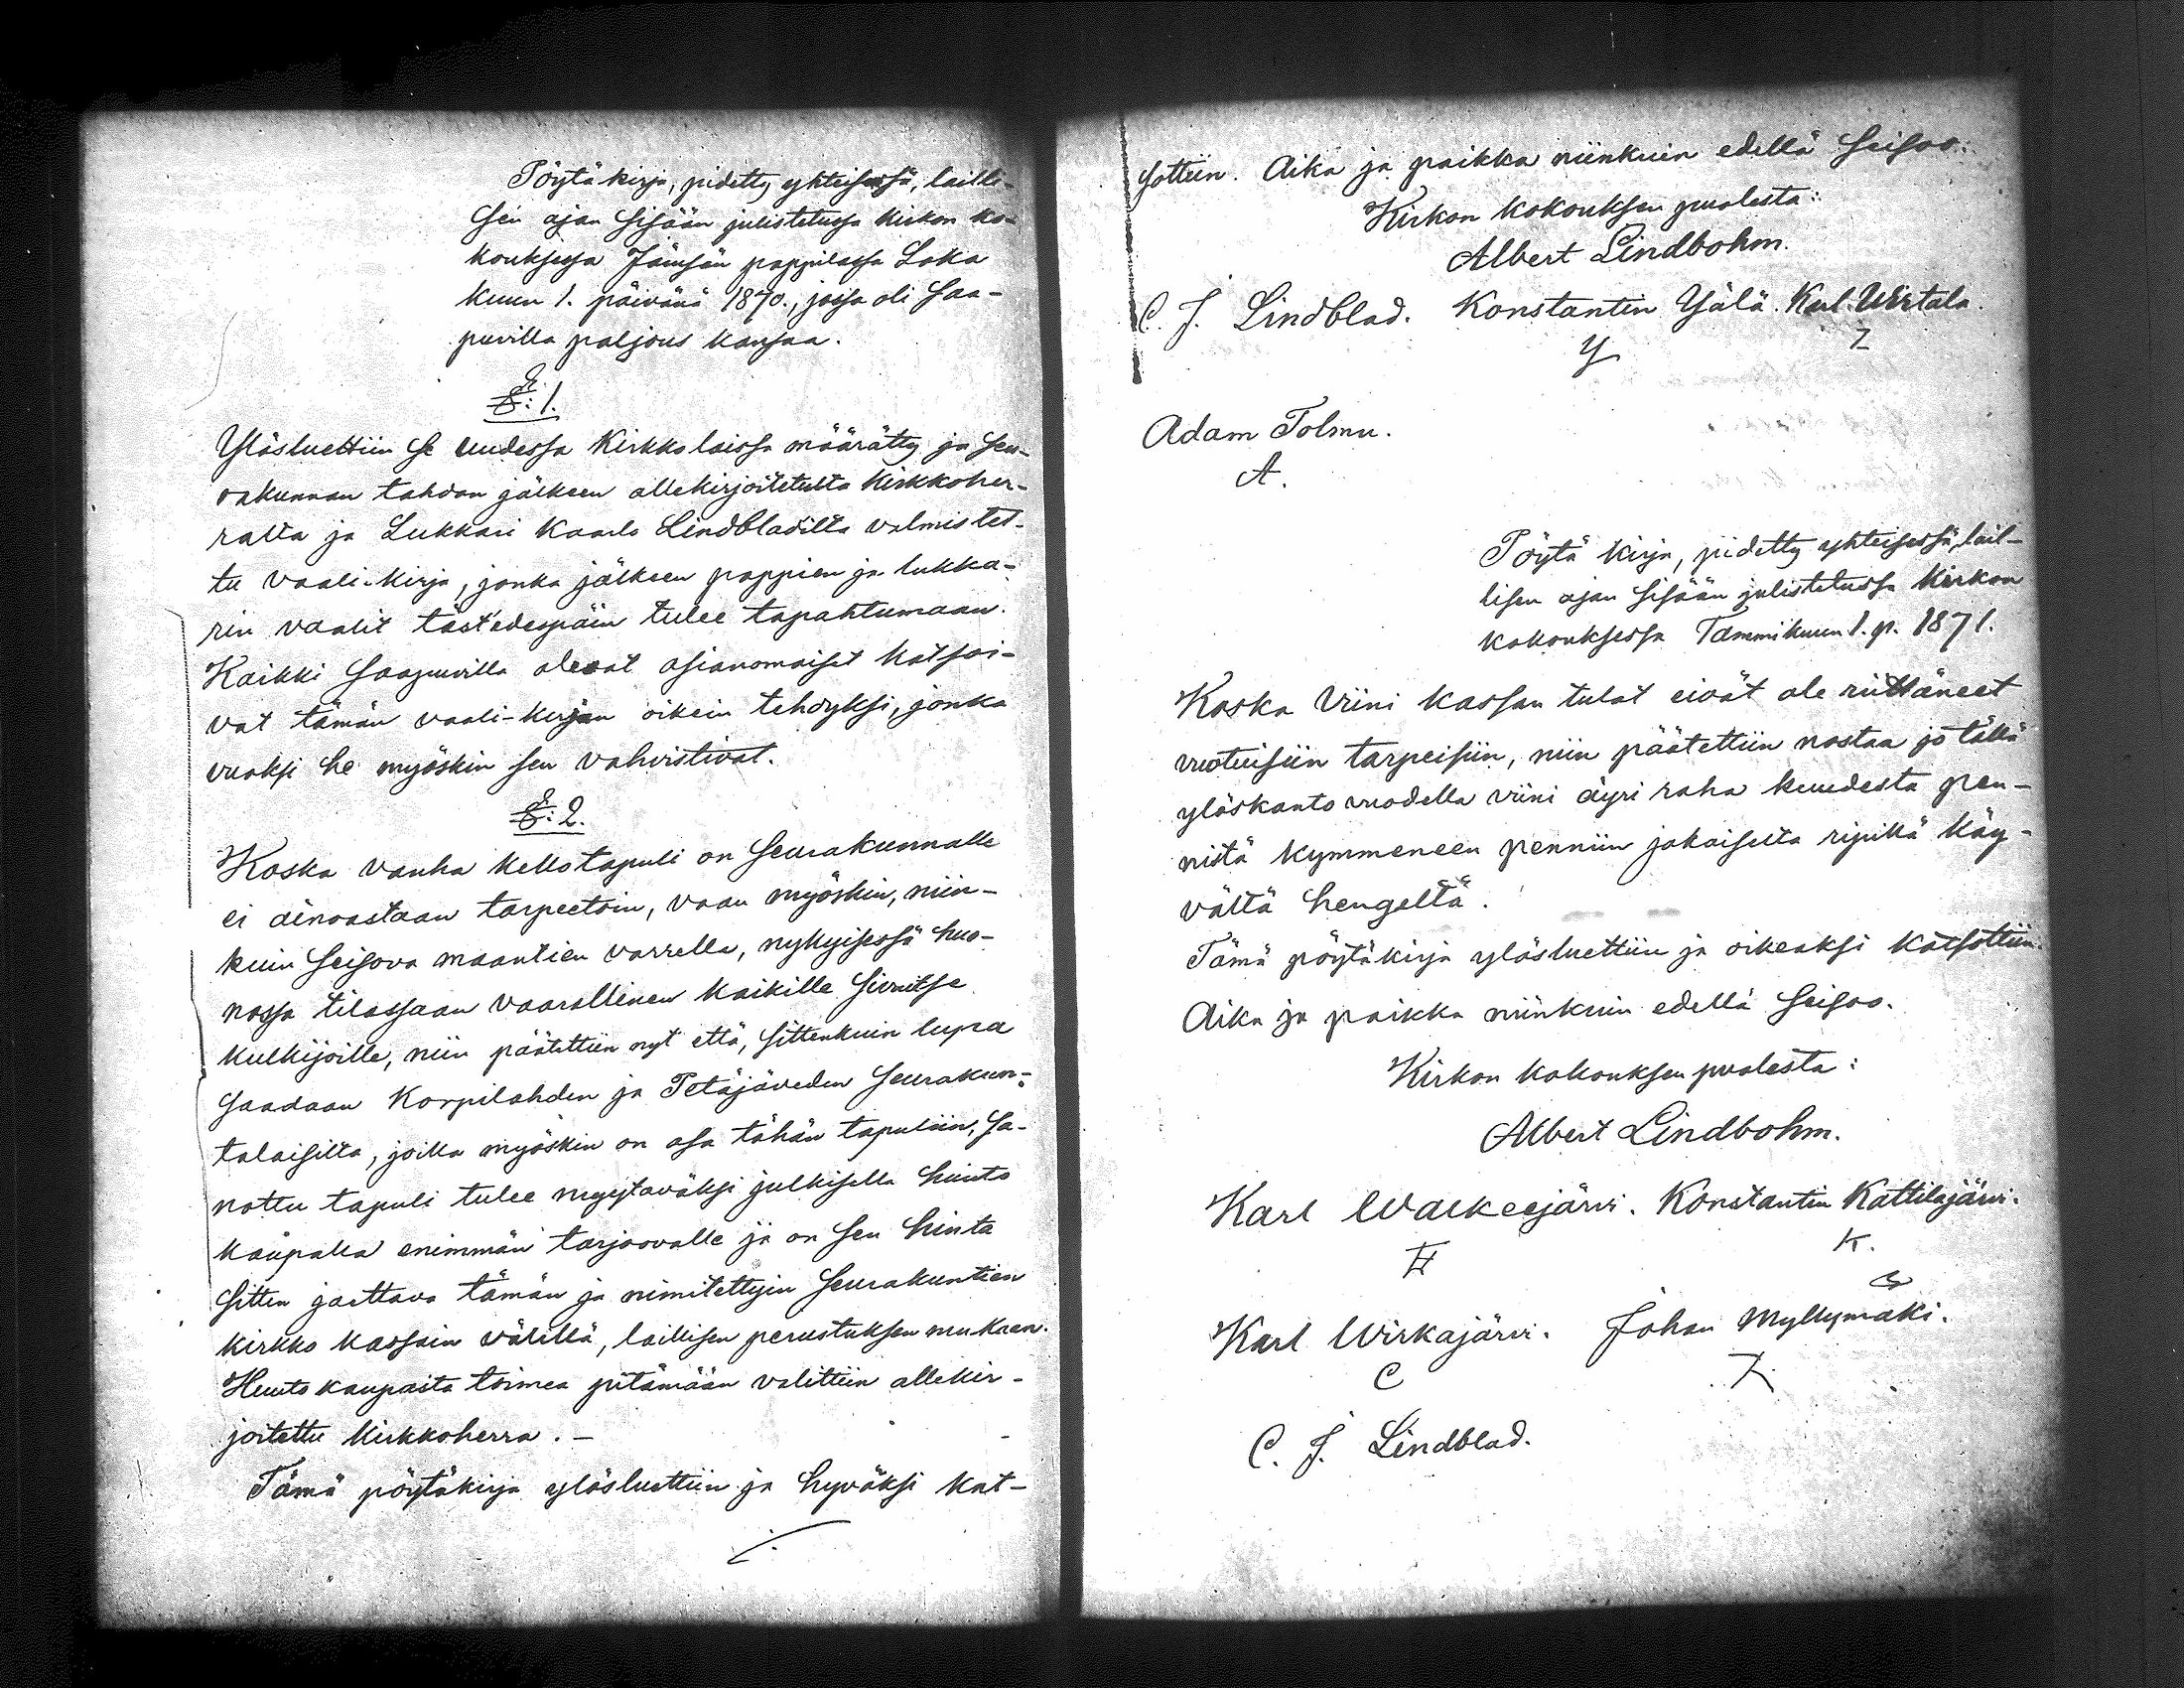 Pöytäkirja, pidetty yhteisessä, lailli-
sen ajan sisään julistetussa kirkon ko-
kouksessa Jämsän pappilassa Loka
kuun 1. päivänä 1870., jossa oli saa-
puvilla paljous kansaa.
§: 1.
Ylösluettiin se uudessa Kirkko laissa määrätty ja seu-
rakunnan tahdon jälkeen allekirjoitetulta kirkkoher-
ralta ja Lukkari Kaarlo Lindbladilta valmistet-
tu vaali-kirja, jonka jälkeen pappien ja lukka-
rin vaalit tästedespäin tulee tapahtumaan.
Kaikki saapuvilla olevat asianomaiset katsoi-
vat tämän vaali-kirjan oikein tehdyksi, jonka
vuoksi he myöskin sen vahvistivat.
§: 2.
Koska vanha kellotapuli on seurakunnalle
ei ainoastaan tarpeetoin, vaan myöskin, niin-
kuin seisova maantien varrella, nykyisessä huo-
nossa tilassaan vaarallinen kaikille sivuitse
kulkijoille, niin päätettiin nyt että, sittenkuin lupa
saadaan Korpilahden ja Petäjäveden seurakun-
talaisilta, joilla myöskin on osa tähän tapuliin, sa-
nottu tapuli tulee myytäväksi julkisella huuto
kaupalla enimmän tarjoovalle ja on sen hinta
sitten jaettava tämän ja nimitettyin seurakuntien
kirkko kassain välillä, laillisen perustuksen mukaan.
Huuto kaupasta toimea pitämään valittiin allekir-
joitettu kirkkoherra. -
Tämä pöytäkirja ylösluettiin ja hyväksi kat-
sottiin. Aika ja paikka niinkuin edellä seisoo:
Kirkon kokouksen puolesta:
Albert Lindbohm.
C. J. Lindblad. Konstantin Yälä. Karl Wirtala.
Adam Tolmu.
A.
Pöytä kirja, pidetty yhteisessä, lail-
lisen ajan sisään julistetussa kirkon
kokouksessa Tammikuun 1. p. 1871.
Koska viini kassan tulot eivät ole riittäneet
vuotuisiin tarpeisiin, niin päätettiin nostaa jo tällä
ylöskanto vuodella viini äyri raha kuudesta pen-
nistä kymmeneen penniin jokaiselta ripillä käy-
vältä hengeltä.
Tämä pöytäkirja ylösluettiin ja oikeaksi katsottiin.
Aika ja paikka niinkuin edellä seisoo.
Kirkon kokouksen puolesta:
Albert Lindbohm.
Karl Walkeejärvi. Konstantin Kattilajärvi.
K.
Karl Wirkajärvi. Johan Myllymäki.
C
C. J. Lindblad.